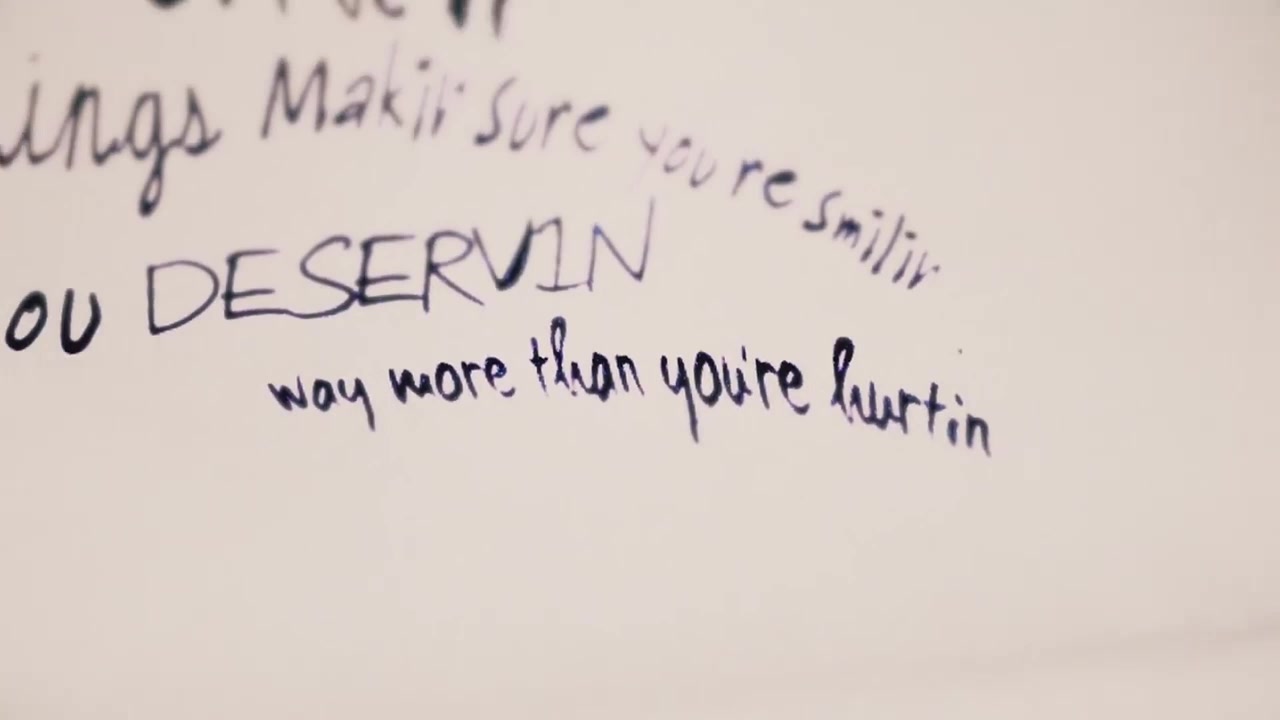 ings Makin sure you're smilin
ou DESERVIN
way more than you're hurtin